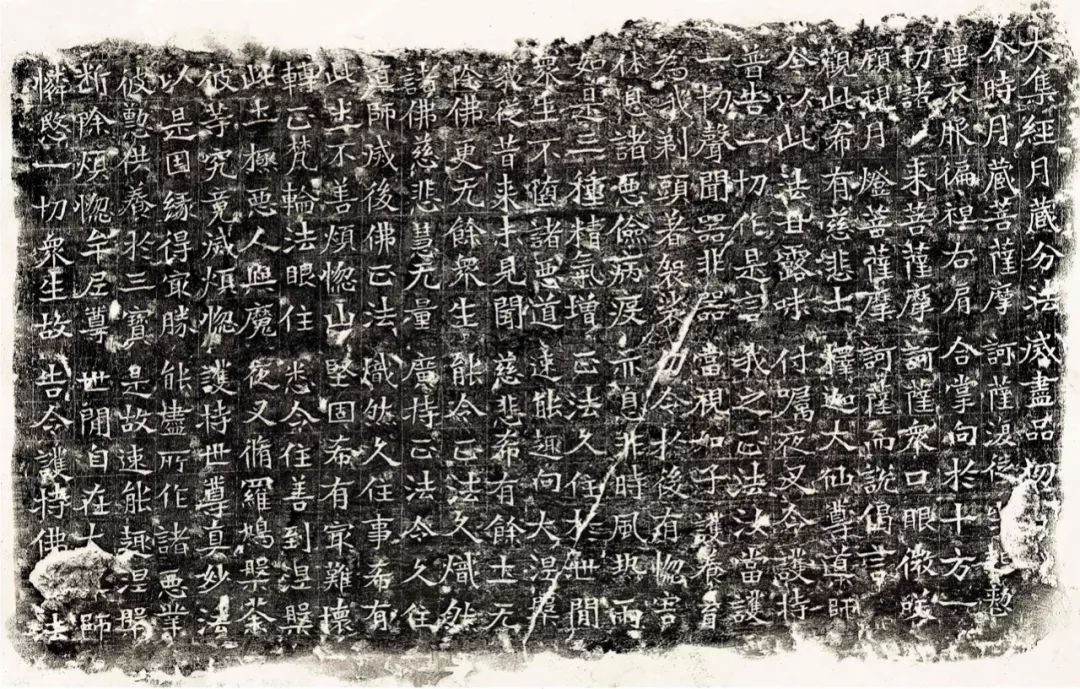 大集經月藏分法滅盡品初
尒時月藏菩薩摩訶薩復從
理衣服偏袒右肩合掌向於十方一
切諸来菩薩摩訶薩衆口眼微咲
顧視月燈菩薩摩訶薩而說偈言
觀此希有慈悲士釋迦大仙尊導師
今以此法甘露味付囑夜叉令護持
普告一切作是言我之正法汝當護
一切聲聞器非器當視如子護養育
為我剃頭著袈裟令於後有惱害
休息諸惡儉病疫亦息非時風热雨
如是三種精氣增正法久住於世間
衆生不墮諸惡道速能趣向大涅槃
我從昔来未見聞慈悲希有餘土无
除佛更无餘衆生能令正法久熾然
諸佛慈悲慧无量廣持正法令久住
真師滅後佛正法熾然久住事希有
此土不善煩惱山堅固希有㝡難壞
轉正梵輪法眼住悉令住善到涅槃
此土極惡人與魔夜叉脩羅鳩槃荼
彼等究竟滅煩惱護持世尊真妙法
以是因緣得㝡勝能盡所作諸惡業
彼懃供養於三寶是故速能趣涅槃
断除煩惱牟尼尊世間自在大師
憐愍一切衆生故告令護持佛法